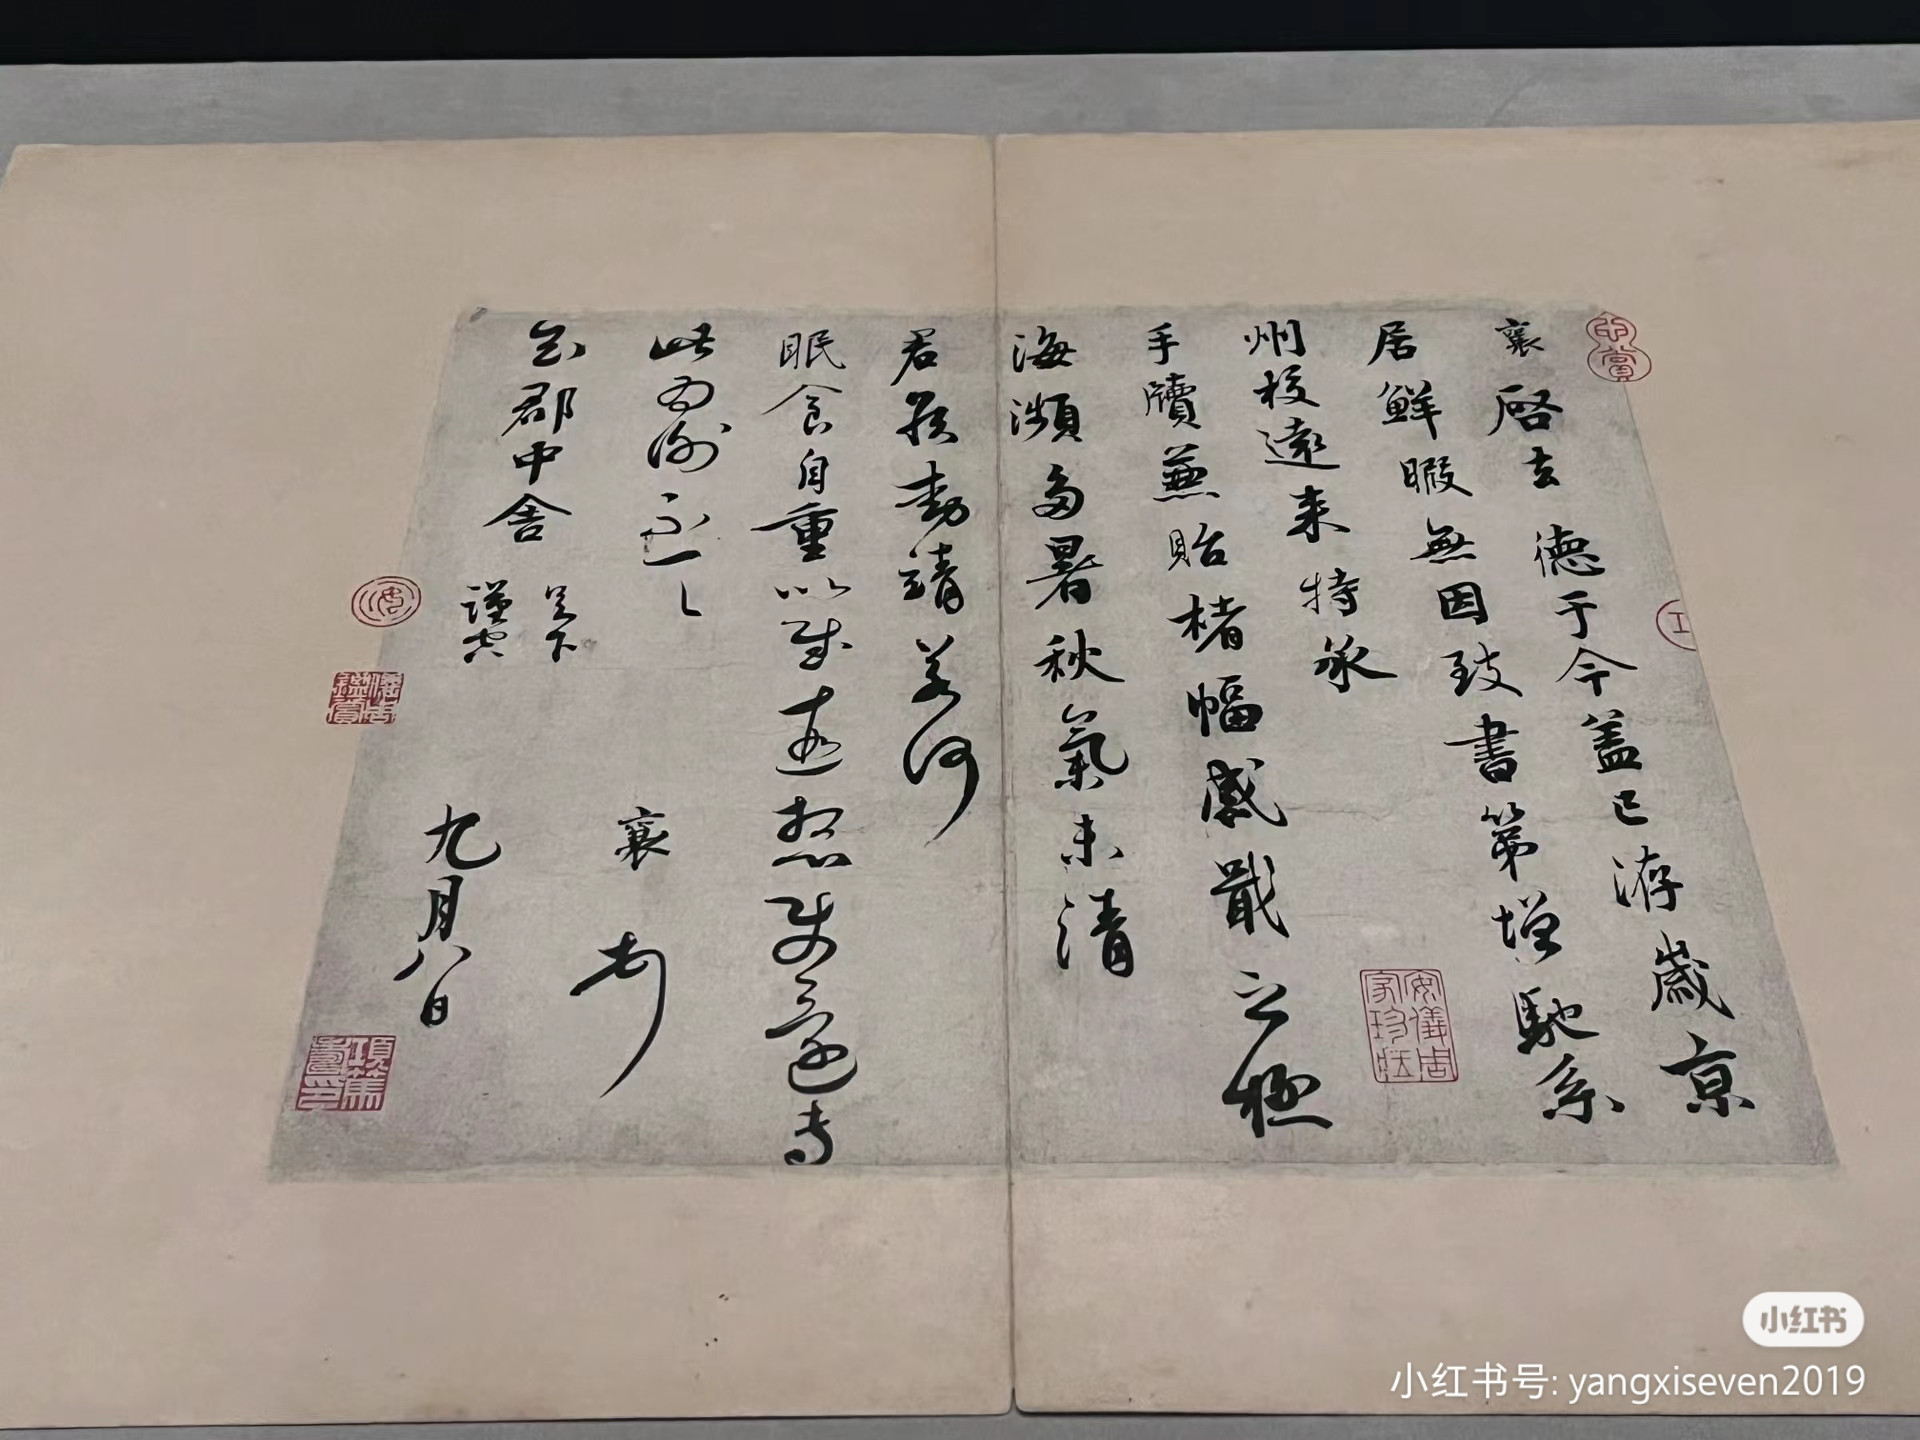 襄啓去德于今蓋已洊歲京
居鮮暇無因致書第增馳系
州校遠來特承
手牘兼貽楮幅感戢之極
海瀕多暑秋氣未清
君侯動靖若何
眠食自重以尉遠想使還專
此爲謝不一一 襄頓首
知郡中舍 足下
謹空 九月八日
安儀周家珍藏
項篤壽印
小红书
小红书号: yangxiseven2019